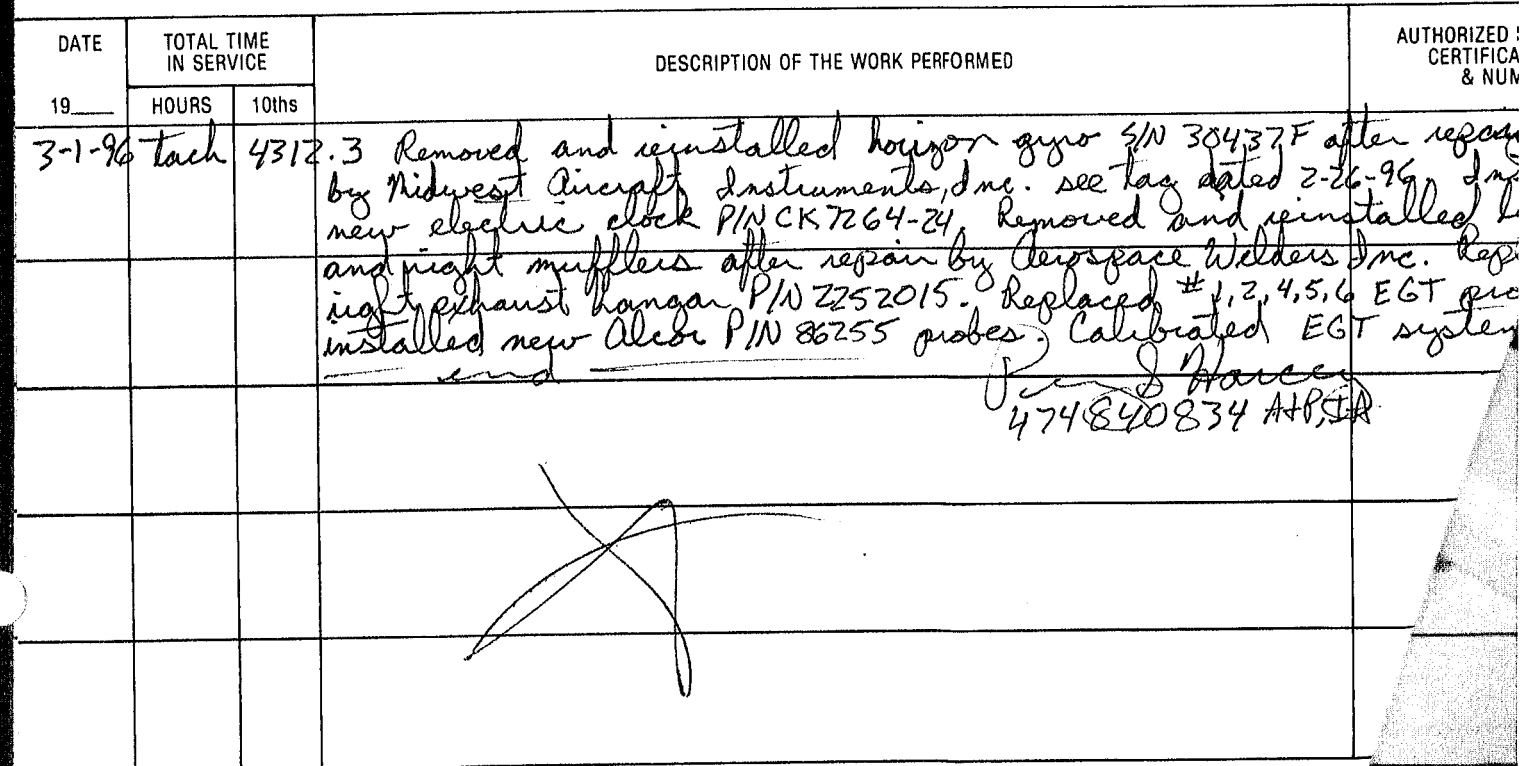 DATE
TOTAL TIME
IN SERVICE
DESCRIPTION OF THE WORK PERFORMED
AUTHORIZED
CERTIFICA
& NUM
19___
HOURS
10ths
3-1-96 tach 4312.3 Removed and reinstalled horizon gyro S/N 30437F after repai
by Midwest Aircraft Instruments, Inc. see tag dated 2-26-96. Ins
new electric clock P/N CK7264-24. Removed and reinstalled le
and right mufflers after repair by Aerospace Welders Inc. Rep
right exhaust hangar P/N 2252015. Replaced #1,2,4,5,6 EGT pro
installed new Alcor P/N 86255 probes. Calibrated EGT system
— end —
S
474840834 A+P, IA